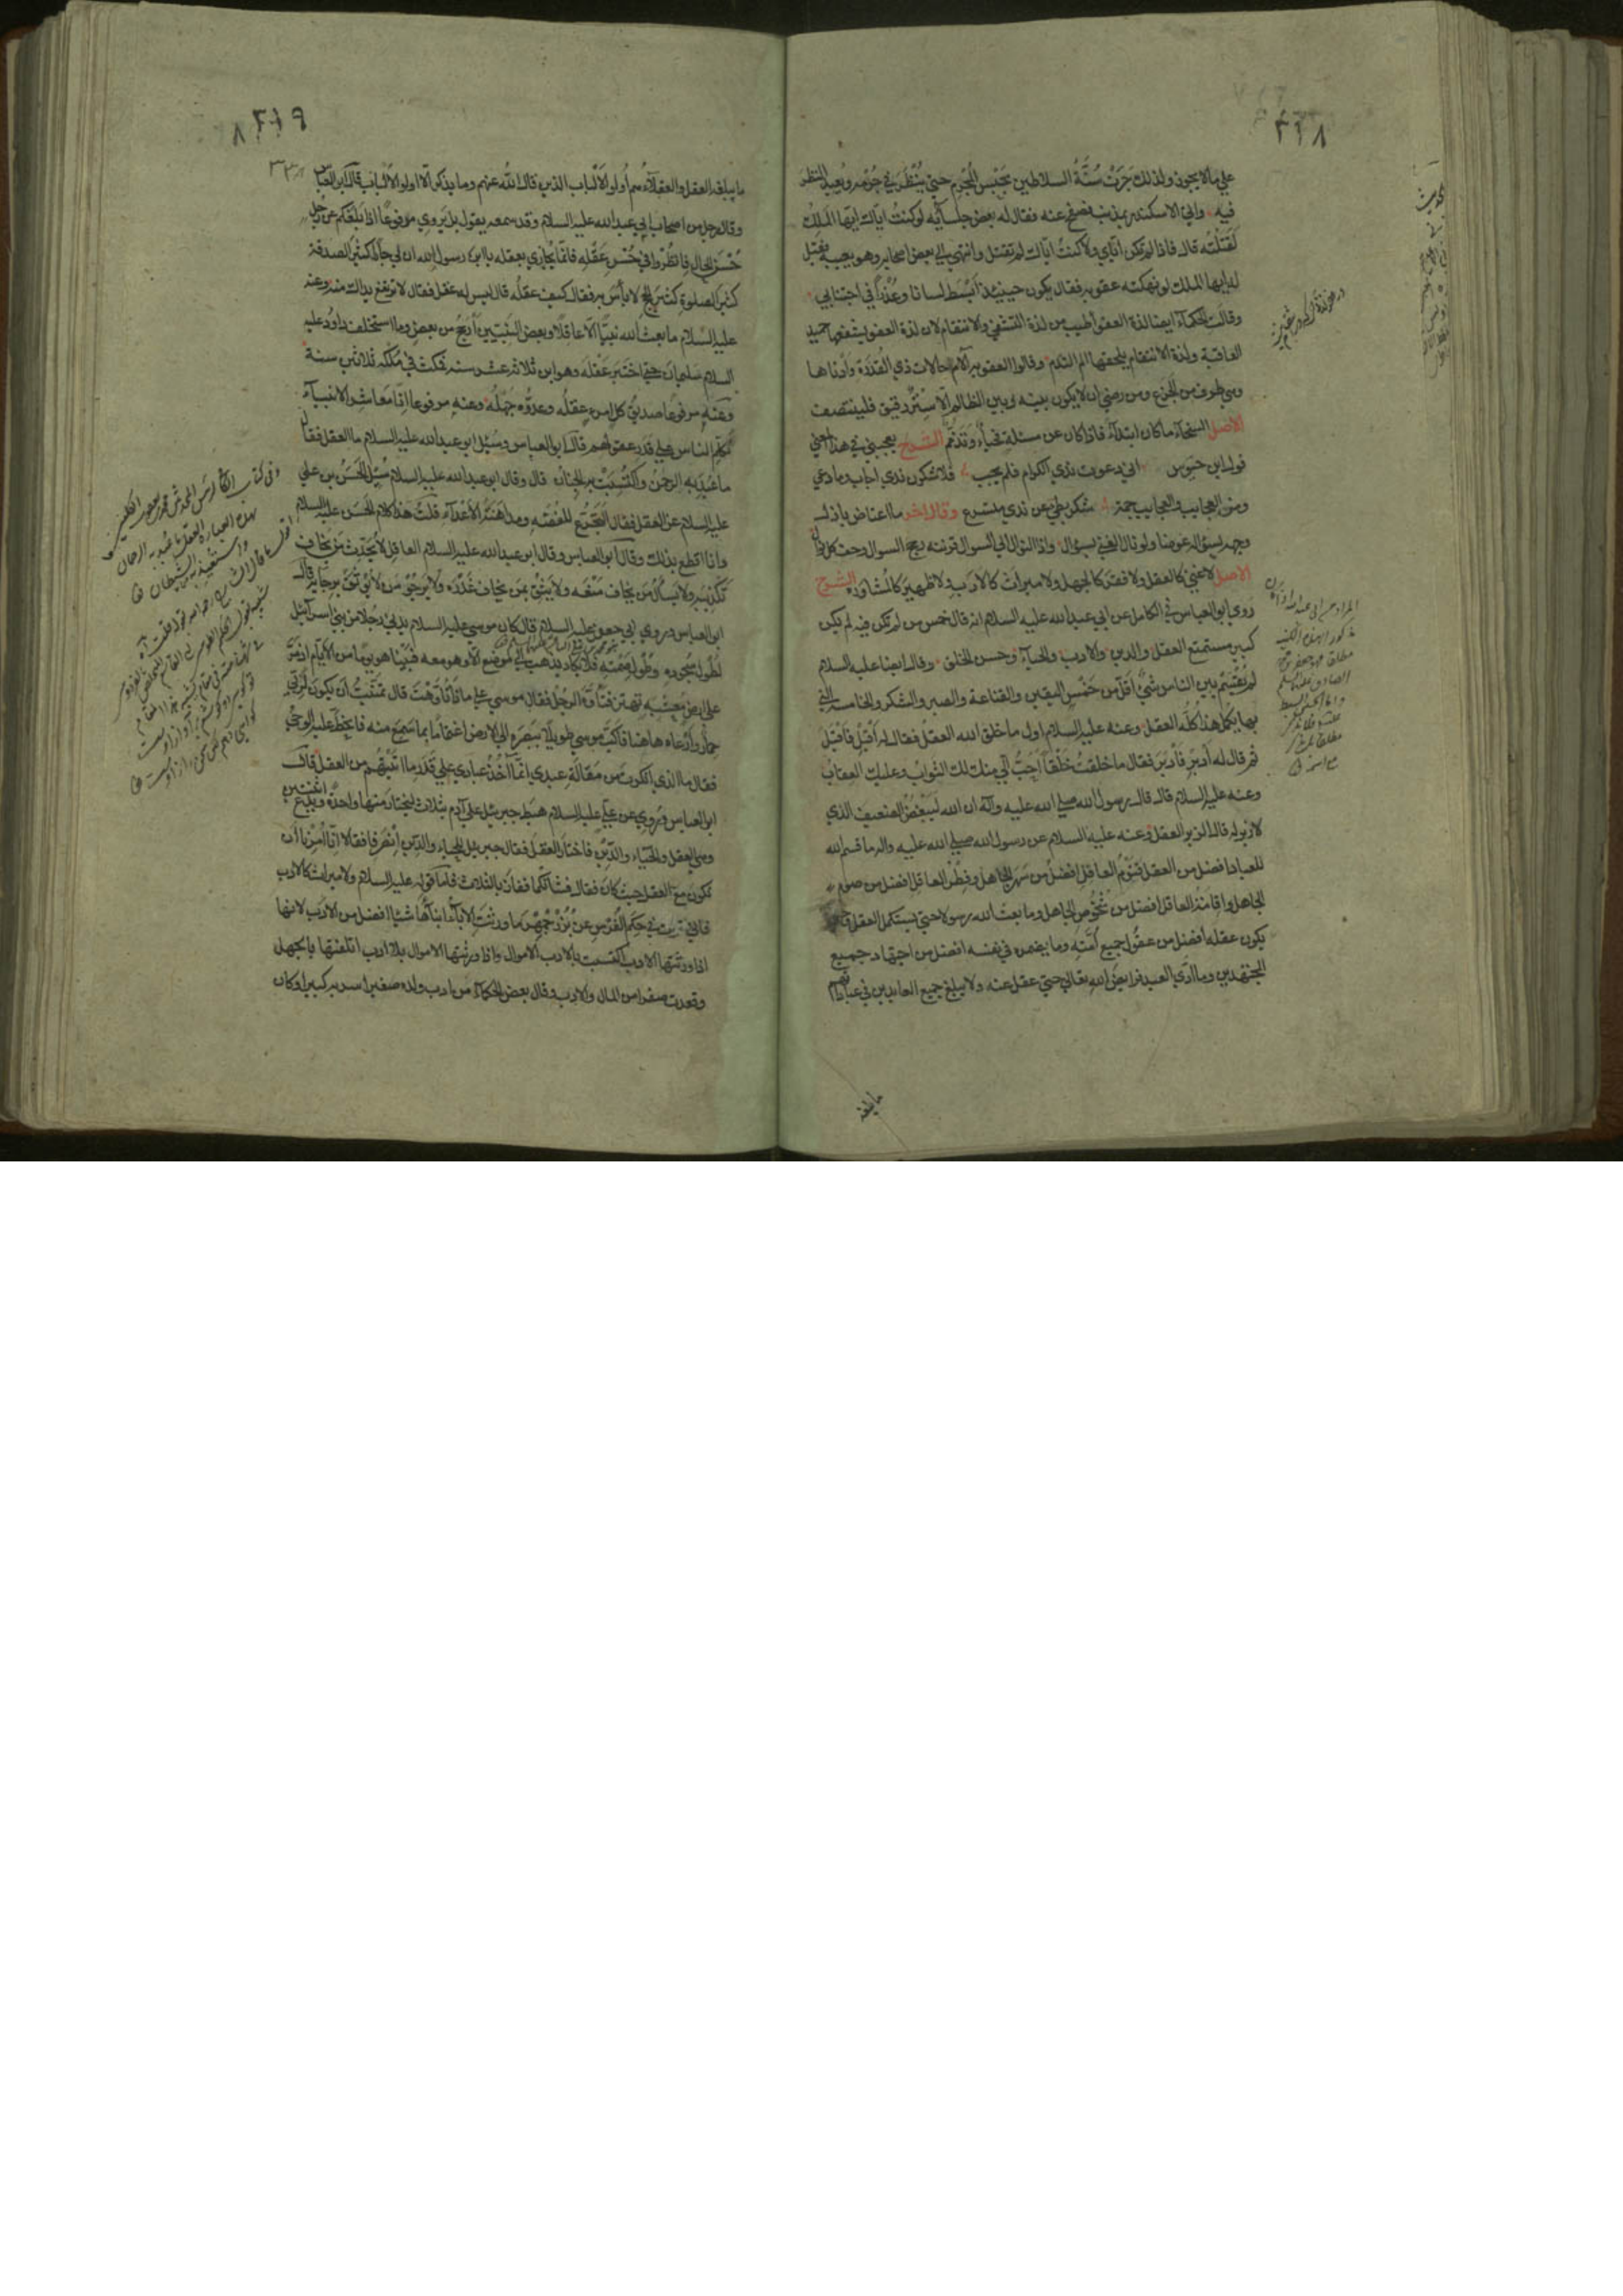 ٢١٨
علي مالا يجوز ولذلك جرت سنة السلاطين بحبس المجرم حتي ينظر في جرمه ويعيد النظر
فيه واتي الاسكندر بمذنب فصفح عنه فقال له بعض جلسائه لو كنت اياك ايها الملك
لقتلته قال فاذا لم تكن اياي ولا كنت اياك لم تقتل وانتهي الي بعض اصحابه وهو يعيبه فقيل
له ايها الملك لو نهكته عقوبة فقال يكون حينئذ ابسط لسانا وعذرا في اجتنابي
وقالت الحكماء ايضا لذة العفو اطيب من لذة التشفي والانتقام لان لذة العفو يشفعها حميد
العاقبة ولذة الانتقام يلحقها الم الندم وقالوا العقوبة الام حالات ذي القدرة وادناها
وهي طرف من الجزع ومن رضي ان لا يكون بينه وبين الظالم الا ستر رقيق فلينتصف
الاصل السخاء ما كان ابتداء فاذا كان عن مسئلة فحياء وتذمم الشرح يعجبني في هذا المعني
قول ابن حيوس اني دعوت ندي الكرام فلم يجب فلاشكرن ندي اجاب وما دعي
ومن العجايب والعجايب جمة شكر بطئ عن ندي متسرع وقال اخر ما اعتاض باذل
وجهه بسؤاله عوضا ولو نال الغني بسؤال واذا النوال الي السوال قرنته رجح السوال وخف كل نوال
الاصل لا غني كالعقل ولا فقر كالجهل ولا ميراث كالادب ولا ظهير كالمشاورة الشرح
روي ابو العباس في الكامل عن ابي عبد الله عليه السلام انه قال خمس من لم تكن فيه لم يكن
كبير مستمتع العقل والدين والادب والحياء وحسن الخلق وقال ايضا عليه السلام
لم يقسم بين الناس شئ اقل من خمس اليقين والقناعة والصبر والشكر والخامسة التي
بها يكمل هذا كله العقل وعنه عليه السلام اول ما خلق الله العقل فقال له اقبل فاقبل
ثم قال له ادبر فادبر فقال ما خلقت خلقا احب الي منك لك الثواب وعليك العقاب
وعنه عليه السلام قال قال رسول الله صلي الله عليه وآله ان الله ليبغض الضعيف الذي
لا زبر له قال الزبر العقل وعنه عليه السلام عن رسول الله صلي الله عليه واله ما قسم الله
للعباد افضل من العقل فنوم العاقل افضل من سهر الجاهل وفطر العاقل افضل من صوم
الجاهل واقامة العاقل افضل من شخوص الجاهل وما بعث الله رسولا حتي يستكمل العقل وحتي
يكون عقله افضل من عقول جميع امته وما يضمره في نفسه افضل من اجتهاد جميع
المجتهدين وما ادي العبد فرايض الله تعالي حتي عقل عنه ولا يبلغ جميع العابدين في عباداتهم
ما يبلغه
٢١٩
٣٣٨
ما يبلغه العقل والعقلاء هم أولو الالباب الذين قال الله عنهم وما يذكر الا اولو الالباب قال ابو العباس
وقال رجل من اصحاب ابي عبد الله عليه السلام وقد سمعه يقول بل يروي مرفوعا اذا بلغكم عن رجل
حسن الحال فانظروا في حسن عقله فانما يجازي بعقله يا ابن رسول الله ان لي جارا كثير الصدقة
كثير الصلوة كثير الحج لا بأس به فقال كيف عقله قال ليس له عقل فقال لا يرتفع بذاك منه وعنه
عليه السلام ما بعث الله نبيا الا عاقلا وبعض النبيين ارجح من بعض وما استخلف داود عليه
السلام سليمان حتي اختبر عقله وهو ابن ثلاثة عشر سنة فمكث في ملكه ثلاثين سنة
وعنه مرفوعا صديق كل امرئ عقله وعدوه جهله وعنه مرفوعا انا معاشر الانبياء
نكلم الناس علي قدر عقولهم قال ابو العباس وسئل ابو عبد الله عليه السلام ما العقل فقال
ما عبد به الرحمن واكتسبت به الجنان قال وقال ابو عبد الله عليه السلام سئل الحسن بن علي
عليه السلام عن العقل فقال التجرع للغصة ومداهنة الاعداء قلت هذا كلام الحسن عليه السلام
وانا اقطع بذلك وقال ابو العباس وقال ابو عبد الله عليه السلام العاقل لا يحدث من يخاف
تكذيبه ولا يسأل من يخاف منعه ولا يثق بمن يخاف غدره ولا يرجو من لا يوثق برجائه قال
ابو العباس وروي ابي جعفر عليه السلام قال كان موسي عليه السلام يدني رجلا من بني اسرآئيل
لطول سجوده وطول صمته فلا يكاد يذهب الي موضع الا وهو معه فبينا هو يوما من الايام اذ مر
علي ارض معشبة تهتز فتأوه الرجل فقال موسي علي ماذا تأوهت قال تمنيت ان يكون لربي
حمار وارعاه هاهنا فاكب موسي طويلا ببصره الي الارض اغتماما بما سمع منه فانحط عليه الوحي
فقال ما الذي انكرت من مقالة عبدي انما آخذ عبادي علي قدر ما اتيتهم من العقل قال
ابو العباس وروي عن علي عليه السلام هبط جبرئيل علي آدم بثلاث ليختار منها واحدة ويدع اثنتين
وهي العقل والحياء والدين فاختار العقل فقال جبريل للحياء والدين انصرفا فقالا انا امرنا ان
نكون مع العقل حيث كان فقال فشأنكما ففاز بالثلاث فاما قوله عليه السلام ولا ميراث كالادب
فاني قرأت في حكم الفرس عن بزرجمهر ما ورثت الاباء ابناءها شيئا افضل من الادب لانها
اذا ورثتها الادب اكتسبت بالادب الاموال واذا ورثتها الاموال بلا ادب اتلفتها بالجهل
وقعدت صفرا من المال والادب وقال بعض الحكماء من ادب ولده صغيرا سر به كبيرا وكان